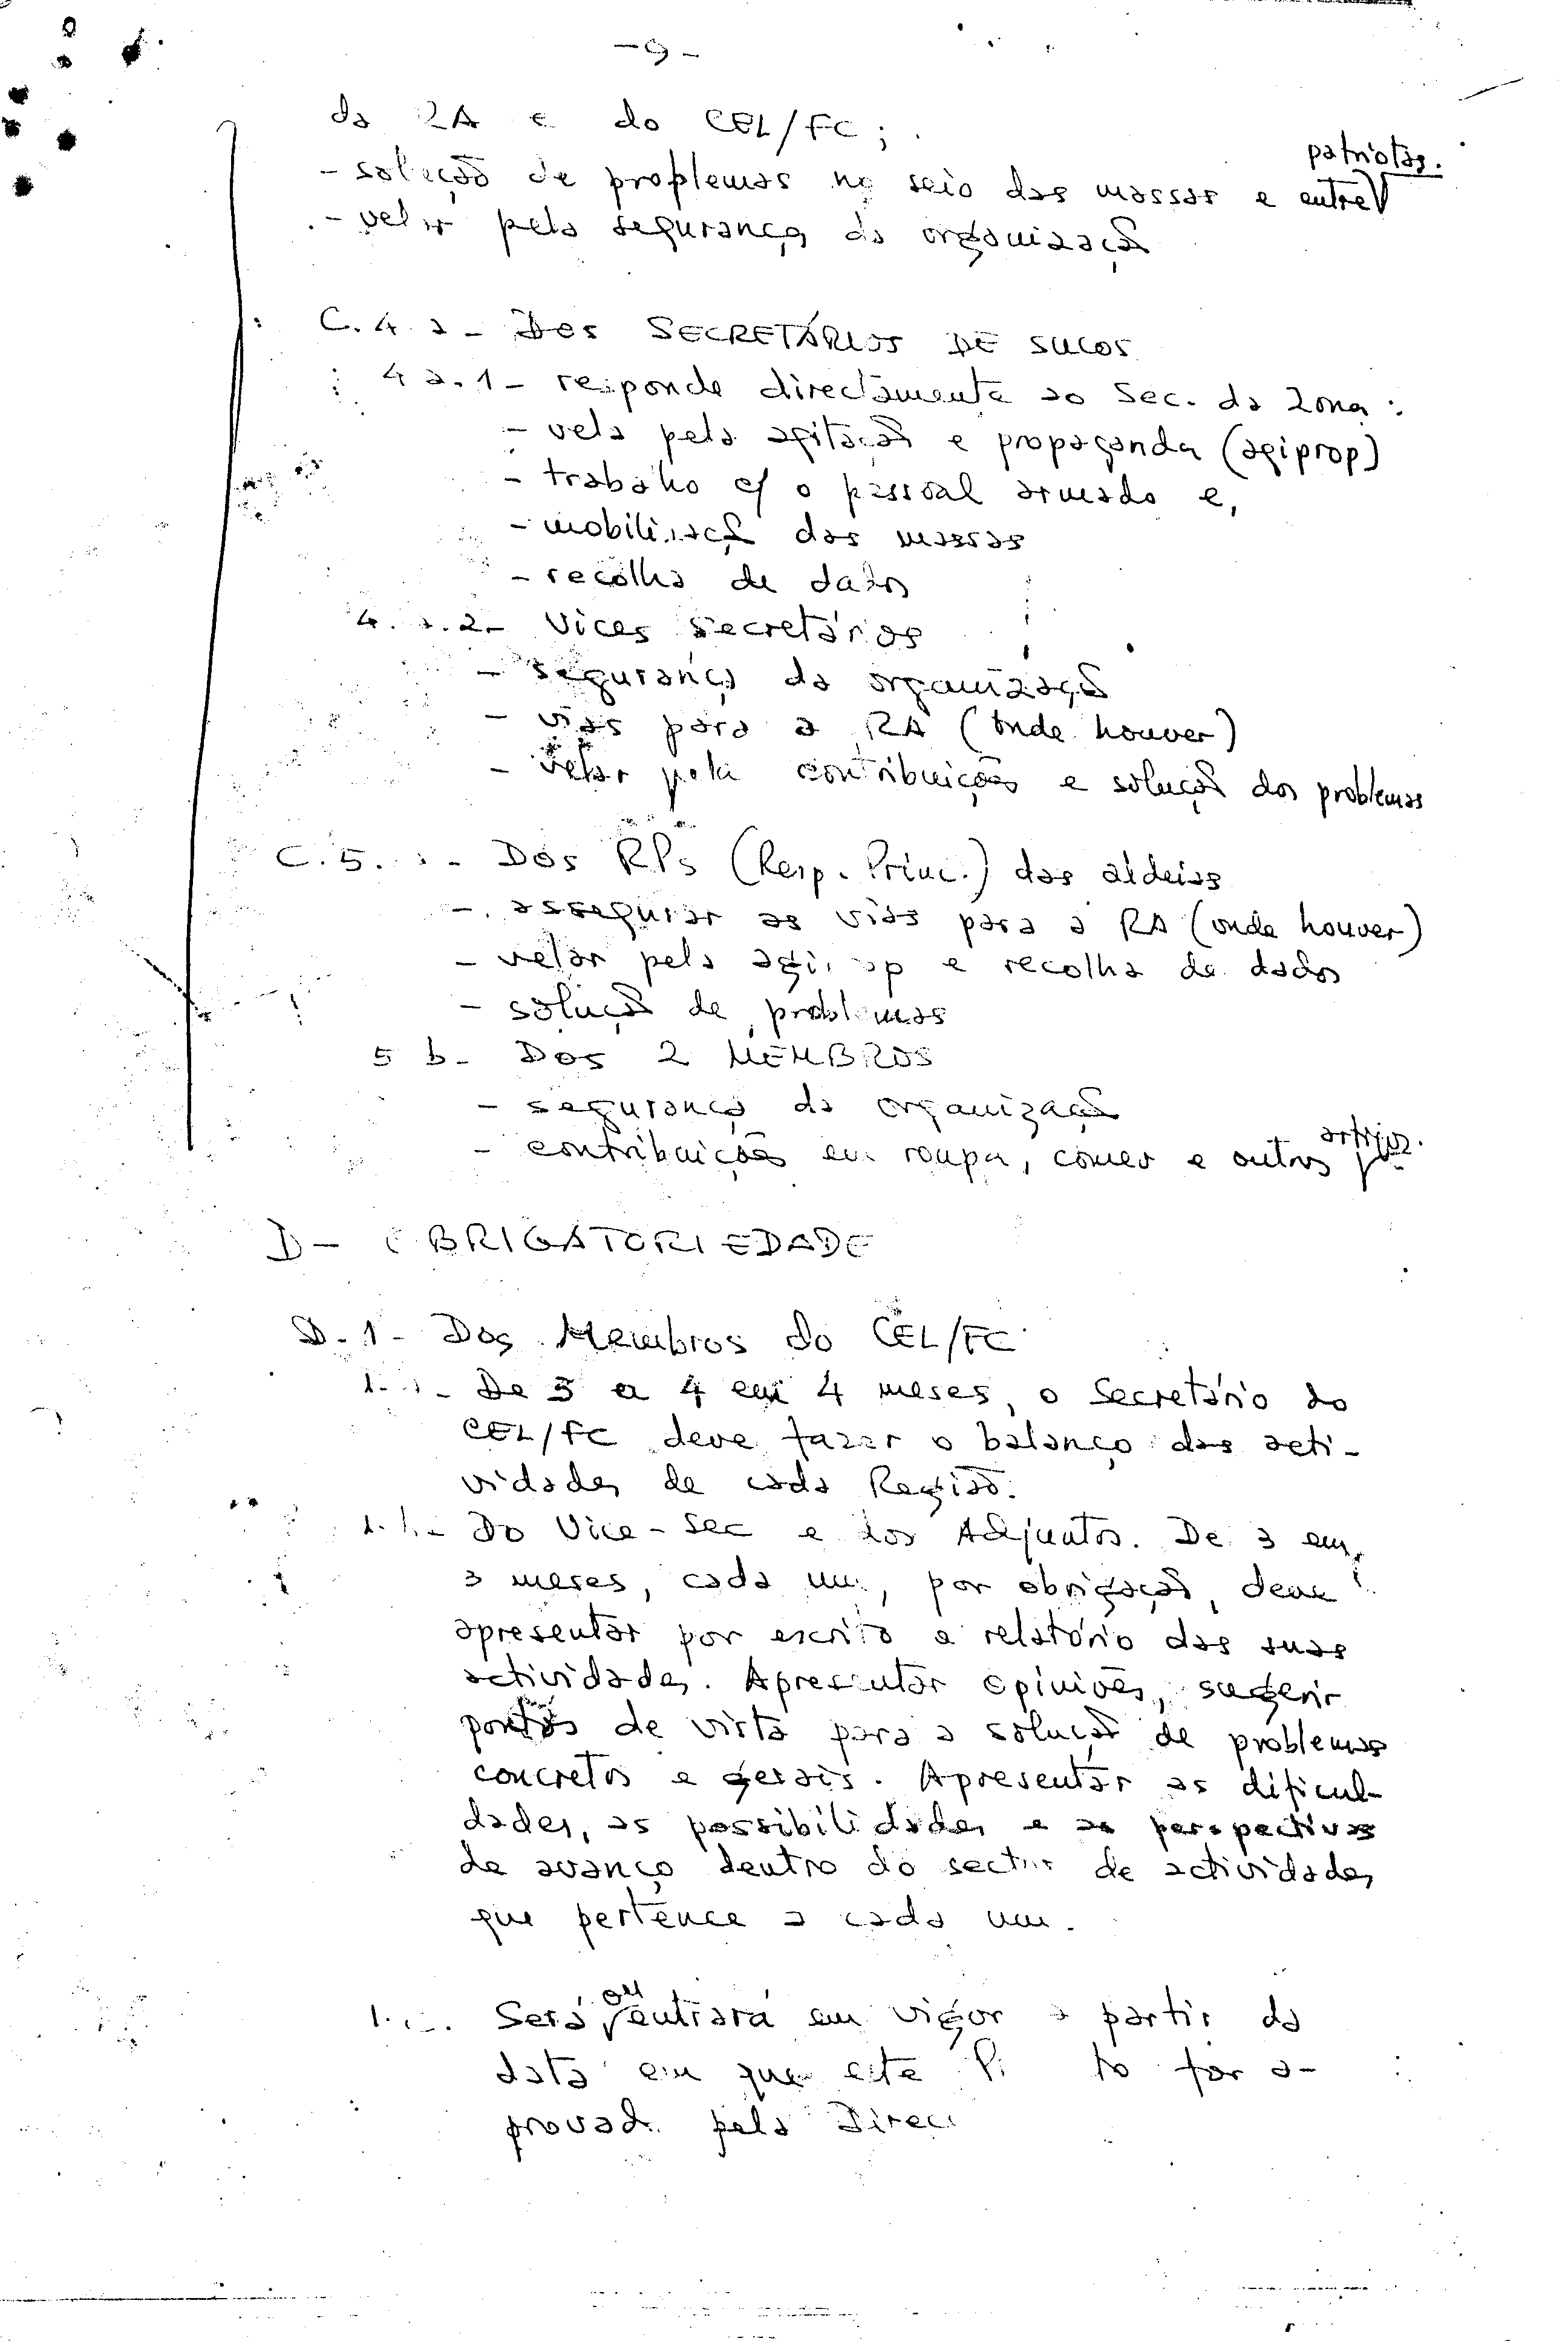 -9-
da RA e do CEL/FC;
- solução de problemas no seio das massas e entre patriotas.
- velar pela segurança da organização
C.4.a - Dos SECRETÁRIOS DE SUCOS
4.a.1- responde directamente ao Sec. da Zona:
- vela pela agitação e propaganda (agiprop)
- trabalho c/ o pessoal armado e,
- mobilização das massas
- recolha de dados
4.a.2- Vices secretários
- segurança da organização
- vias para a RA (onde houver)
- velar pela contribuições e solução dos problemas
C.5.a - Dos RPs (Resp. Princ.) das aldeias
- assegurar as vias para a RA (onde houver)
- velar pela agiprop e recolha de dados
- solução de problemas
5 b- Dos 2 MEMBROS
- segurança da organização
- contribuições em roupa, comer e outros artigos.
D- OBRIGATORIEDADE
D-1- Dos Membros do CEL/FC
1.a- De 3 a 4 em 4 meses, o Secretário do
CEL/FC deve fazer o balanço das acti-
vidades de cada Região.
1.b- Do Vice-Sec e dos Adjuntos. De 3 em
3 meses, cada um, por obrigação, deve
apresentar por escrito o relatório das suas
actividades. Apresentar opiniões, sugerir
pontos de vista para a solução de problemas
concretos e gerais. Apresentar as dificul-
dades, as possibilidades e as perspectivas
de avanço dentro do sector de actividades
que pertence a cada um.
1.c. Será ou entrará em vigor a partir da
data em que este to for a-
provad pela Direc